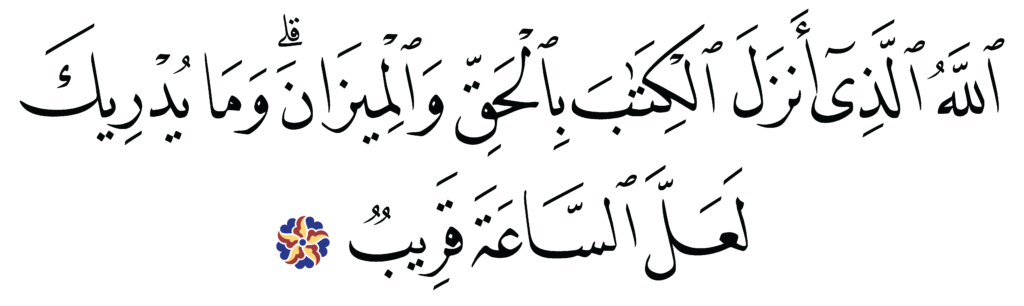 ٱللَّهُ ٱلَّذِىٓ أَنزَلَ ٱلْكِتَٰبَ بِٱلْحَقِّ وَٱلْمِيزَانَ ۗ وَمَا يُدْرِيكَ
لَعَلَّ ٱلسَّاعَةَ قَرِيبٌ